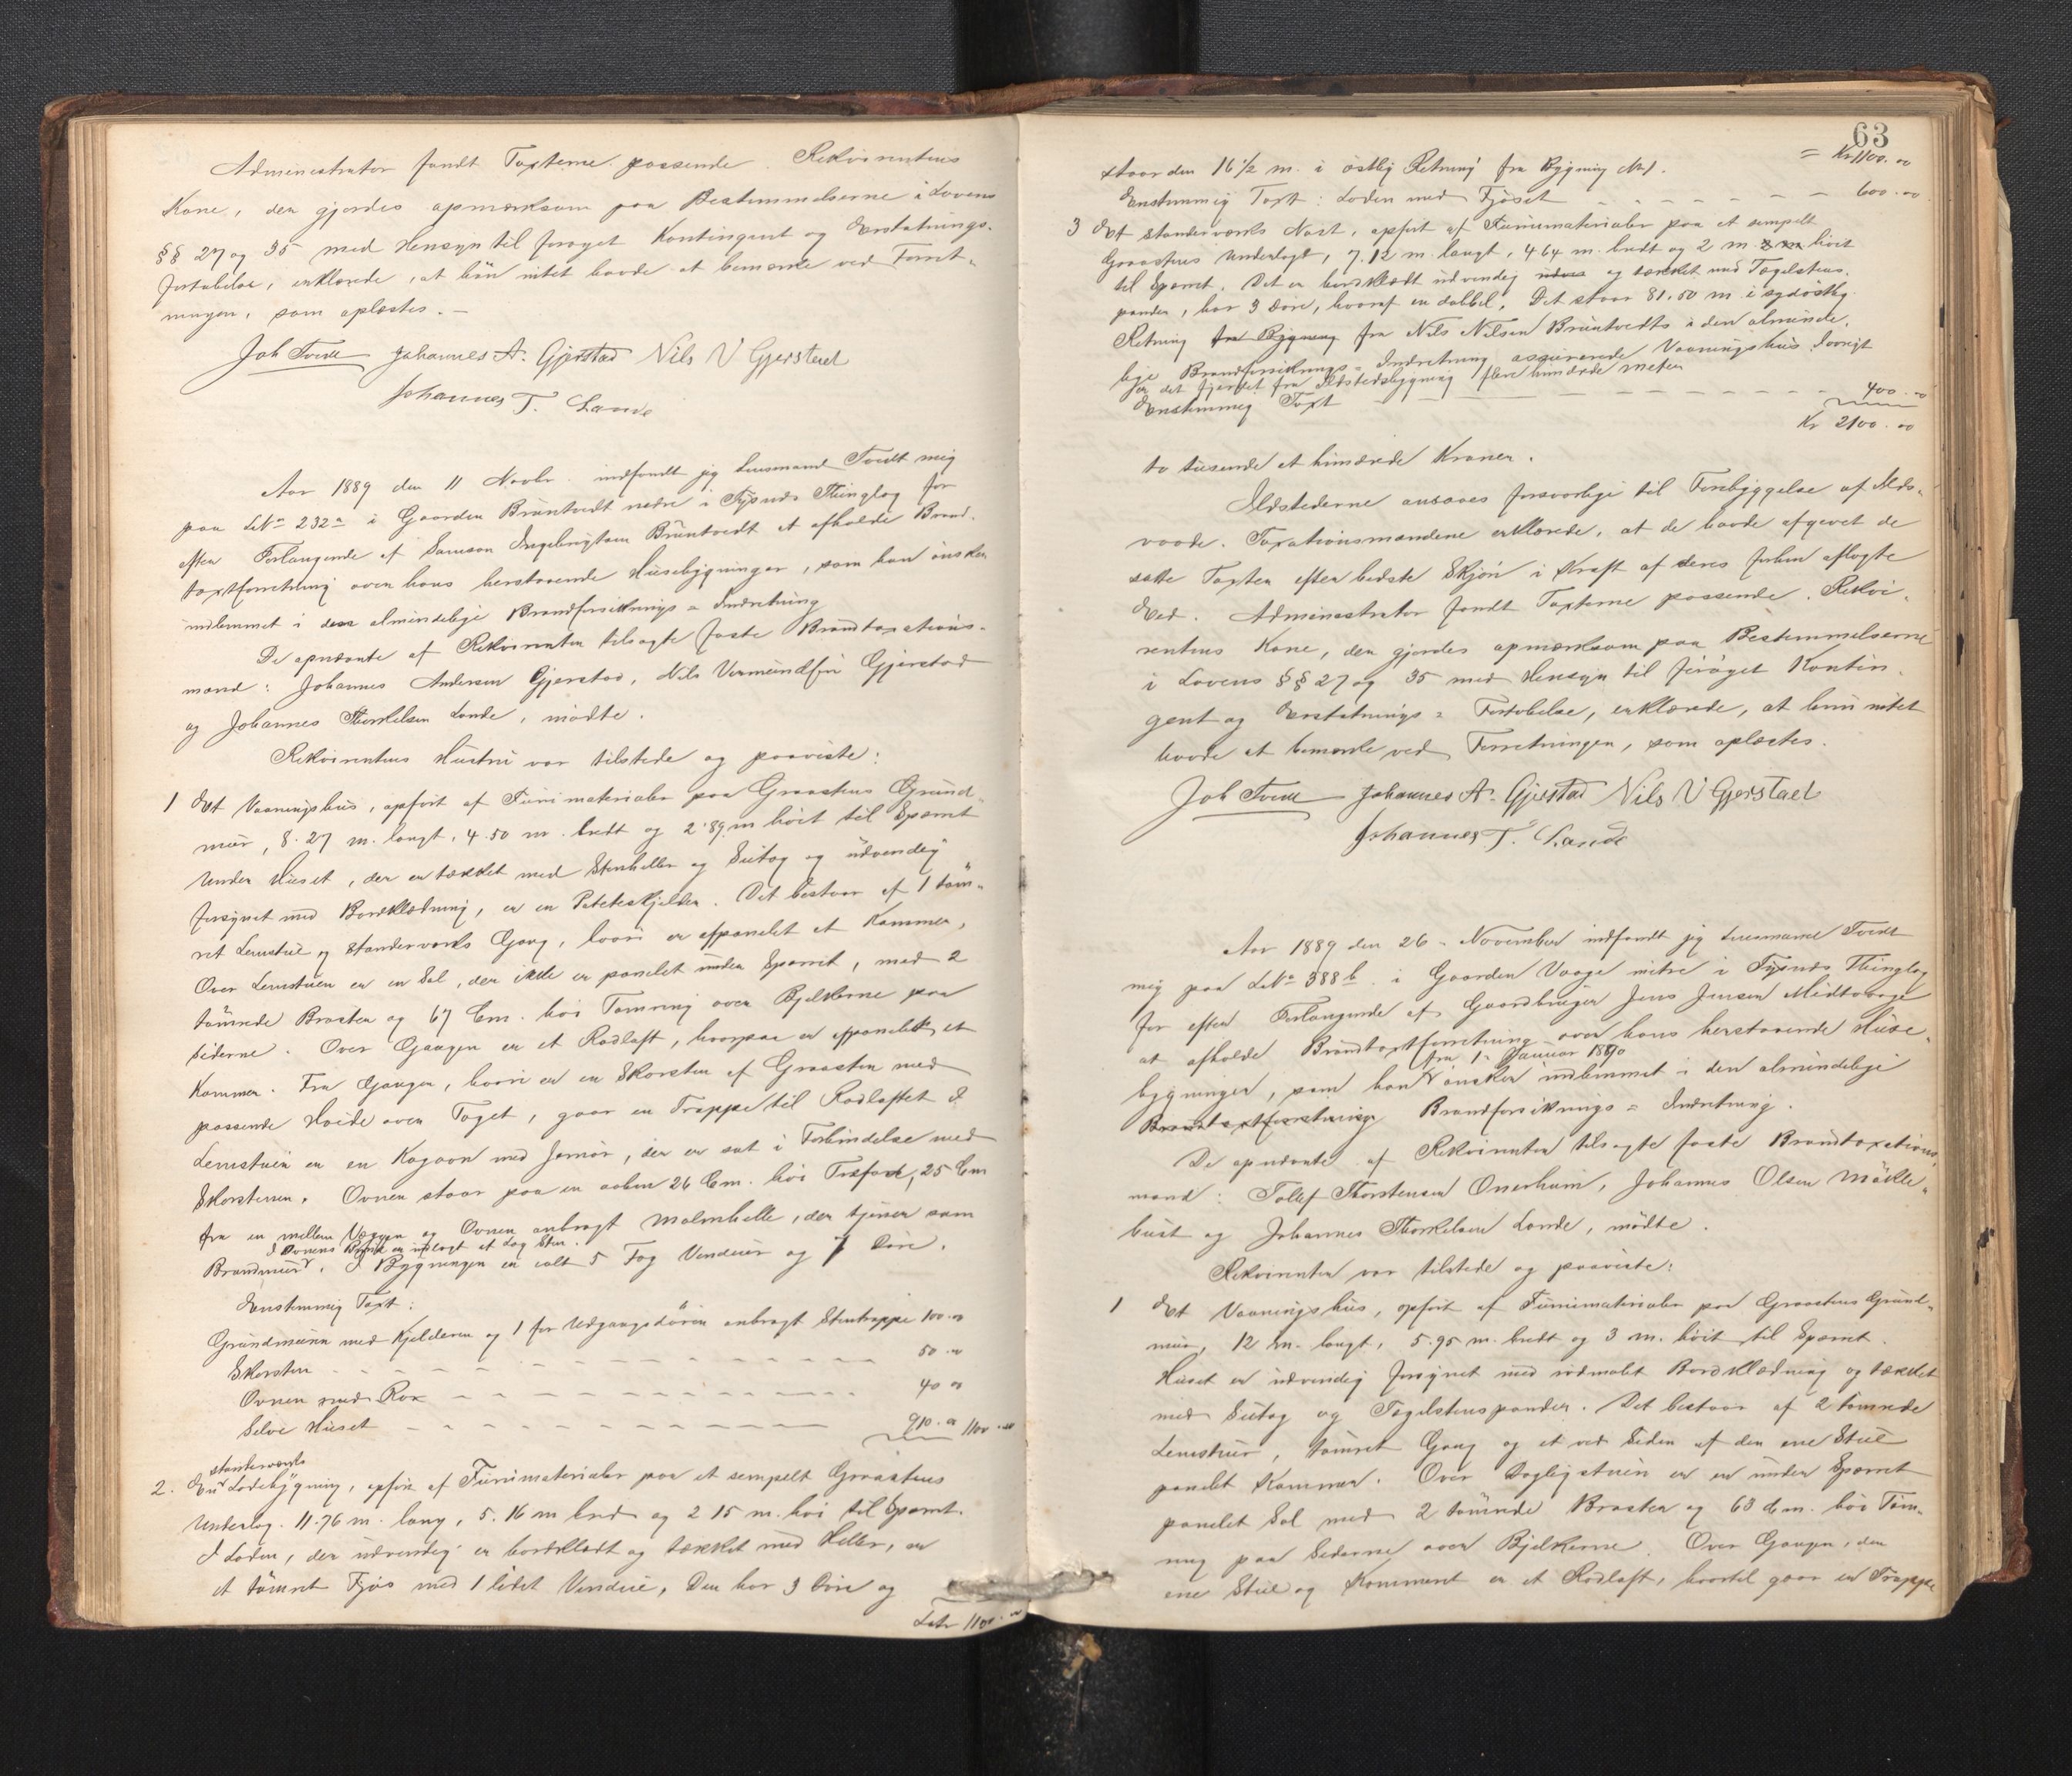 Administrator fandt Taxterne passende. Rekvirentens
Kone, den gjordes opmærksom paa Bestemmelserne i Lovens
§§ 27 og 35 med Hensyn til forøget Kontingent og Erstatnings-
fortabelse, erklærede, at hun intet havde at bemærke ved Forret-
ningen, som oplæstes. —
Joh Tvedt Johannes A. Gjerstad Nils V Gjerstad
Johannes T. Lande
Aar 1889 den 11 Novbr. indfandt jeg Lensmand Tvedt mig
paa LNo 232a i Gaarden Bruntvedt nedre i Tysnes Thinglag for
efter Forlangende af Samson Ingebrigtsen Bruntvedt at afholde Brand-
taxtforretning over hans herstaaende Husebygninger, som han ønsker
indlemmet i den almindelige Brandforsikrings-Indretning
De opnævnte af Rekvirenten tilsagte faste Brandtaxations-
mænd: Johannes Andersen Gjerstad, Nils Vermundsen Gjerstad
og Johannes Thorkelsen Lande, mødte.
Rekvirentens Hustru var tilstede og paaviste:
1 Et Vaaningshus, opført af Furumaterialer paa Graastens Grund-
mur, 8.27 m. langt, 4.50 m. bredt og 2.89 m høit til Sparret
Under Huset, der er tækket med Stenheller og Sutag og udvendig
forsynet med Bordklædning, er en Poteteskjelder. Det bestaar af 1 tøm-
ret Lemstue og standerværks Gang, hvori er afpanelet et Kammer,
Over Lemstuen er en Sal, der ikke er panelet under Sparret, med 2
tømrede Braster og 67 Cm. høi Tømring over Bjelkerne paa
Siderne. Over Gangen er et Rodlaft, hvorpaa er afpanelet et
Kammer. Fra Gangen, hvori er en Skorsten af Graasten med
passende Høide over Taget, gaar en Trappe til Rodlaftet I
Lemstuen er en Kogovn med Jernrør, der er sat i Forbindelse med
Skorstenen. Ovnen staar paa en aaben 26 Cm. høi Træfod, 25 Cm
fra en mellem Væggen og Ovnen anbragt Malmhelle, der tjener som
I Ovnens Bund er indlagt et Lag Sten.
Brandmur. I Bygningen er ialt 5 Fag Vinduer og 7 Døre.
Enstemmig Taxt:
Grundmuren med Kjelderen og 1 for Udgangsdøren anbragt Stentrappe 100.00
Skorsten 50.00
Ovnen med Rør 40 00
Selve Huset 910.00 1100.00
standerværks
2. En Ladebygning, opført af Furumaterialer paa et simpelt Graastens
Underlag. 11.76 m. lang, 5.16 m bred og 2 15 m. høi til Sparret.
I Laden, der udvendig er bordklædt og tækket med Heller, er
et tømret Fjøs med 1 lidet Vindue, Den har 3 Døre og
Lats 1100.00
63
= Kr 1100.00
staar den 16 1/2 m. i østlig Retning fra Bygning No 1.
Enstemmig Taxt: Laden med Fjøset 600.00
3 Et standerværks Nøst, opført af Furumaterialer paa et simpelt
Graastens Underlagt, 7.12 m. langt, 4 64 m. bredt og 2 m. høit
til Sparret. Det er bordklædt udvendig og tækket med Tagelstens-
pander, har 3 Døre, hvoraf en dobbel. Det staar 81.50 m. i sydøstlig
Retning fra Bygning fra Nils Nilsen Bruntvedts i den alminde-
lige Brandforsikrings-Indretning assurerede Vaaningshus, forøvrigt
er det fjernet fra Ildstedsbygning flere hundrede meter
Enstemmig Taxt 400.00
Kr 2100.00
to tusende et hundrede Kroner.
Ildstederne ansaaes forsvarlige til Forebyggelse af Ilds-
vaade. Taxationsmændene erklærede, at de havde afgivet de
satte Taxter efter bedste Skjøn i Kraft af deres forhen aflagte
Ed. Administrator fandt Taxterne passende. Rekvi-
rentens Kone, den gjordes opmærksom paa Bestemmelserne
i Lovens §§ 27 og 35 med Hensyn til forøget Kontin-
gent og Erstatnings-Fortabelse, erklærede, at hun intet
havde at bemærke ved Forretningen, som oplæstes.
Joh Tvedt Johannes A. Gjerstad Nils V Gjerstad
Johannes T. Lande
Aar 1889 den 26. November indfandt jeg Lensmand Tvedt
mig paa LNo 388 b. i Gaarden Vaage nedre i Tysnes Thinglag
for efter Forlangende af Gaardbruger Jens Jensen Midtvaage
at afholde Brandtaxtforretning over hans herstaaende Huse-
fra 1. Januar 1890
bygninger, som han ønsker indlemmet i den almindelige
Brandtaxtforretning Brandforsikrings-Indretning.
De opnævnte af Rekvirenten tilsagte faste Brandtaxations-
mænd: Tollef Thorstensen Onerheim, Johannes Olsen Møkle-
bust og Johannes Thorkelsen Lande, mødte.
Rekvirenten var tilstede og paaviste:
1 Et Vaaningshus, opført af Furumaterialer paa Graastens Grund-
mur, 12 m. langt, 5.95 m. bredt og 3 m. høit til Sparret.
Huset er udvendig forsynet med rødmalet Bordklædning og tækket
med Sutag og Tagelstenspander. Det bestaar af 2 tømrede
Lemstuer, tømret Gang og et ved Siden af den ene Stue
panelet Kammer. Over Dagligstuen er en under Sparret
panelet Sal med 2 tømrede Braster og 63 Cm. høi Tøm-
ring paa Siderne over Bjelkerne. Over Gangen, den
ene Stue og Kammeret er et Rodlaft, hvortil gaar en Trappe